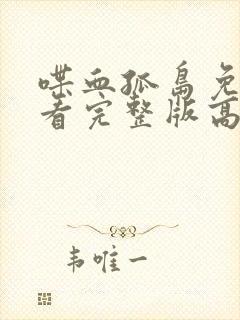 喋血孤岛免
看完整版高
韦唯一